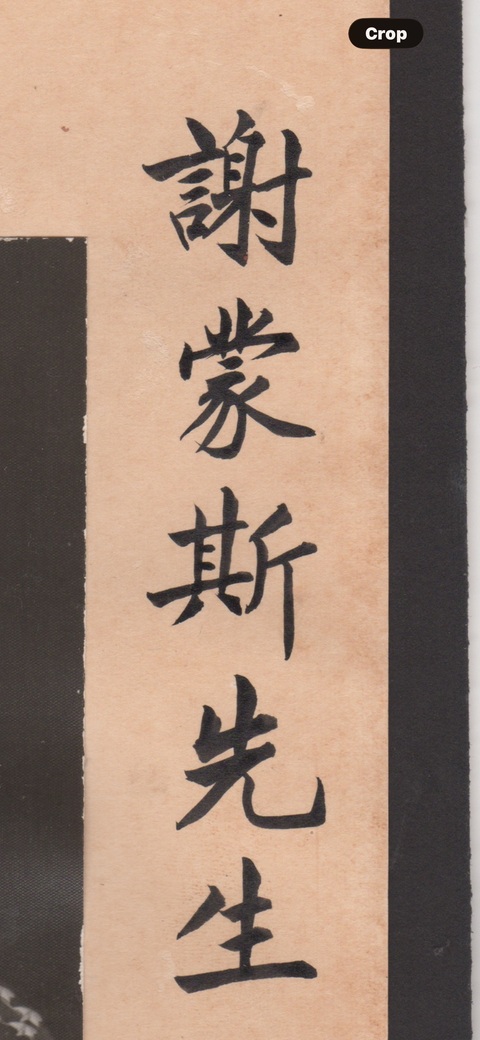 Crop
謝蒙斯先生